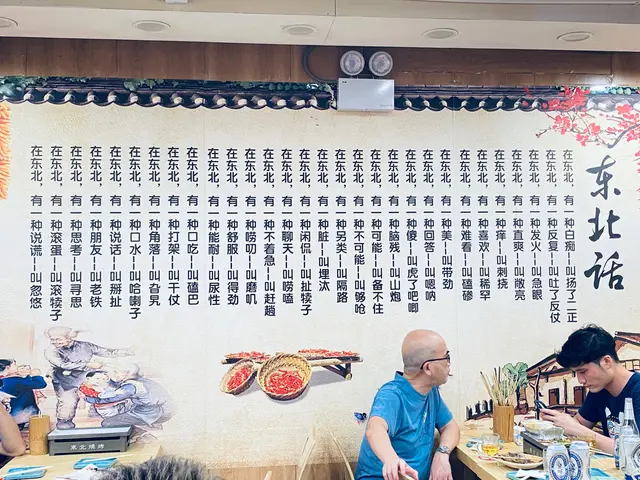 东北话
在东北，有一种白痴—叫扬了二正
在东北，有一种反复—叫吐了反仗
在东北，有一种发火—叫急眼
在东北，有一种直爽—叫敞亮
在东北，有一种痒—叫刺挠
在东北，有一种喜欢—叫稀罕
在东北，有一种难看—叫磕碜
在东北，有一种美—叫带劲
在东北，有一种回答—叫嗯呐
在东北，有一种傻—叫虎了吧唧
在东北，有一种脑残—叫山炮
在东北，有一种可能—叫备不住
在东北，有一种不可能—叫够呛
在东北，有一种另类—叫隔路
在东北，有一种脏—叫埋汰
在东北，有一种闲侃—叫扯犊子
在东北，有一种聊天—叫唠嗑
在东北，有一种不着急—叫赶趟
在东北，有一种唠叨—叫磨叽
在东北，有一种舒服—叫得劲
在东北，有一种能耐—叫尿性
在东北，有一种口吃—叫磕巴
在东北，有一种打架—叫干仗
在东北，有一种角落—叫旮旯
在东北，有一种口水—叫哈喇子
在东北，有一种说话—叫掰扯
在东北，有一种朋友—叫老铁
在东北，有一种思考—叫寻思
在东北，有一种滚蛋—叫滚犊子
在东北，有一种说谎—叫忽悠
東北燒烤